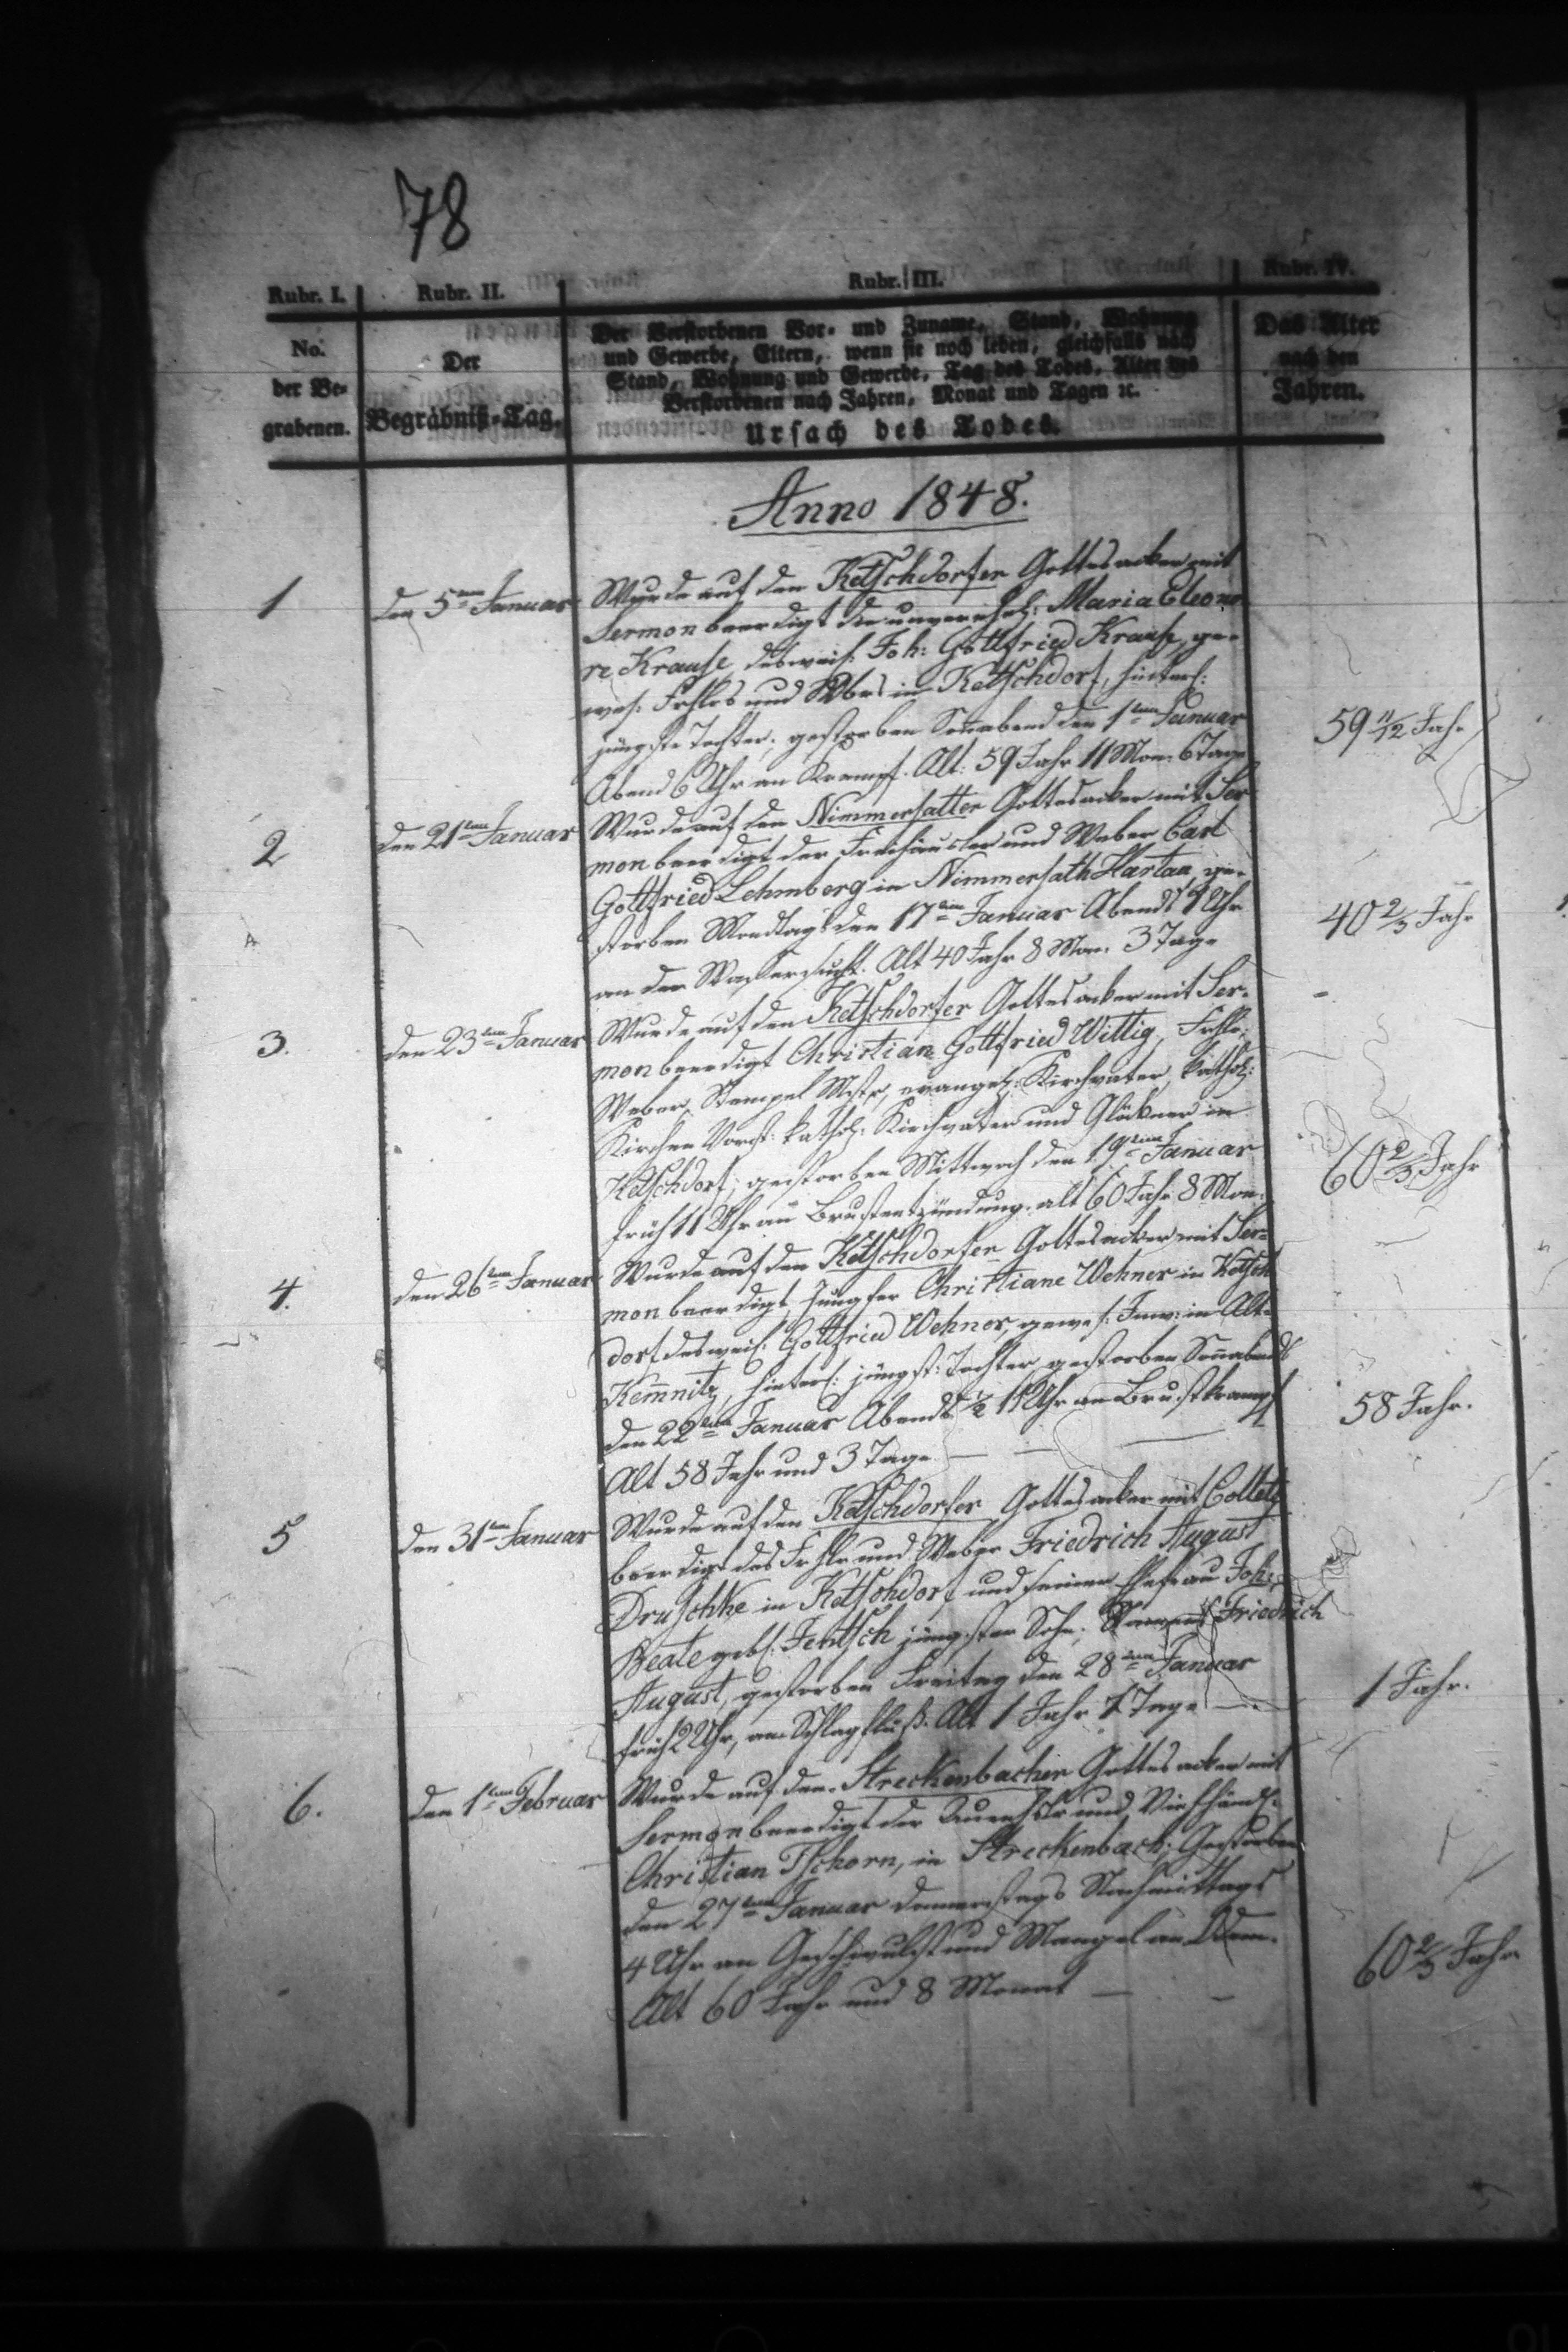 78
Rubr. I.
Rubr. II.
Rubr. III.
Rubr. IV.
No.
der Be-
grabenen.
Der
Begräbniß-Tag.
Der Verstorbenen Vor- und Zuname, Stand, Wohnung
und Gewerbe, Eltern, wenn sie noch leben, gleichfalls nach
Stand, Wohnung und Gewerbe, Tag des Todes, Alter des
Verstorbenen nach Jahren, Monat und Tagen ꝛc.
Ursach des Todes.
Das Alter
nach den
Jahren.
Anno 1848.
1
den 5ten Januar
Wurde auf den Ketschdorfer Gottesacker mit
Sermon beerdigt die unverehel: Maria Eleono
re Krause, des weil. Joh: Gottfried Krause, ge-
wes: Frhlrs und Wbrs in Ketschdorf, hinterl:
jüngste Tochter; gestorben Sonnabend den 1ten Januar
Abend 6 Uhr an Krampf. Alt: 59 Jahr 11 Mon. 6 Tage
59 11/12 Jahr
2
den 21ten Januar
Wurde auf den Nimmersatter Gottesacker mit Ser
mon beerdigt der Freihäusler und Weber Carl
Gottfried Lehmberg in Nimmersath Hartau, ge-
storben Mondtags den 17ten Januar Abends 9 Uhr
an der Wassersucht. Alt 40 Jahr 8 Mon. 3 Tage
40 2/3 Jahr
3.
den 23ten Januar
Wurde auf den Ketschdorfer Gottesacker mit Ser-
mon beerdigt Christian Gottfried Wittig, Frhlr,
Weber, Stempel Mstr, evangel: Kirchvater, kathol:
Kirchen Vorst: kathol: Kirchvater und Glöckner in
Ketschdorf; gestorben Mittwoch den 19ten Januar
früh 11 Uhr an Brustentzündung. alt 60 Jahr 8 Mon.
60 2/3 Jahr
4.
den 26ten Januar
Wurde auf den Ketschdorfer Gottesacker mit Ser-
mon beerdigt, Jungfer Christiane Wehner in Ketsch
dorf des weil. Gottfried Wehner, gewes: Inw: in Alt-
Kemnitz, hinterl: jüngst: Tochter gestorben Sonnabends
den 22ten Januar Abends ½ 11 Uhr an Brustkrampf
Alt 58 Jahr und 3 Tage
58 Jahr.
5
den 31ten Januar
Wurde auf den Ketschdorfer Gottesacker mit
beerdigt des Frhlr und Weber Friedrich August
Druschke in Ketschdorf und seiner Ehefrau Joh:
Beate geb: Jentsch jüngster Sohn; Friedrich
August, gestorben Freitag den 28ten Januar
früh 2 Uhr, am Schlagfluß. Alt 1 Jahr 7 Tage
1 Jahr.
6.
den 1ten Februar
Wurde auf den Streckenbacher Gottesacker mit
Sermon beerdigt der und Viehhändl:
Christian Tschorn, in Streckenbach; Gestorben
den 27ten Januar Donnerstags Nachmittags
4 Uhr an Geschwulst und Mangel an Odem.
Alt 60 Jahr und 8 Monat
60 2/3 Jahr